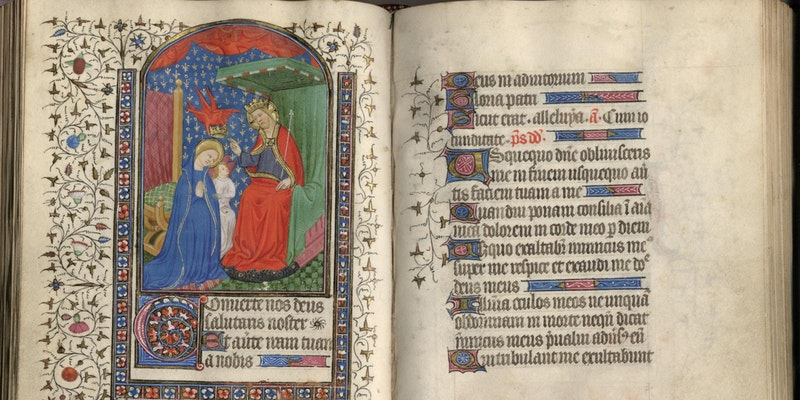 Conuerte nos deus
salutaris noster
Et auerte iram tuam
a nobis
Deus in adiutorium
Gloria patri
Sicut erat. alleluya. a. Cum io
cunditate. ps. dd.
Usquequo dne obliuisceris
me in finem usquequo auer
tis faciem tuam a me
Quandiu ponam consilia i aia
mea dolorem in corde meo p diem
Usquequo exaltabr inimicus me
super me respice et exaudi me dne
deus meus
Illumina oculos meos ne unqua
obdormiam in morte nequ dicat
inimicus meus preualui adus eu
Qui tribulant me exultabunt